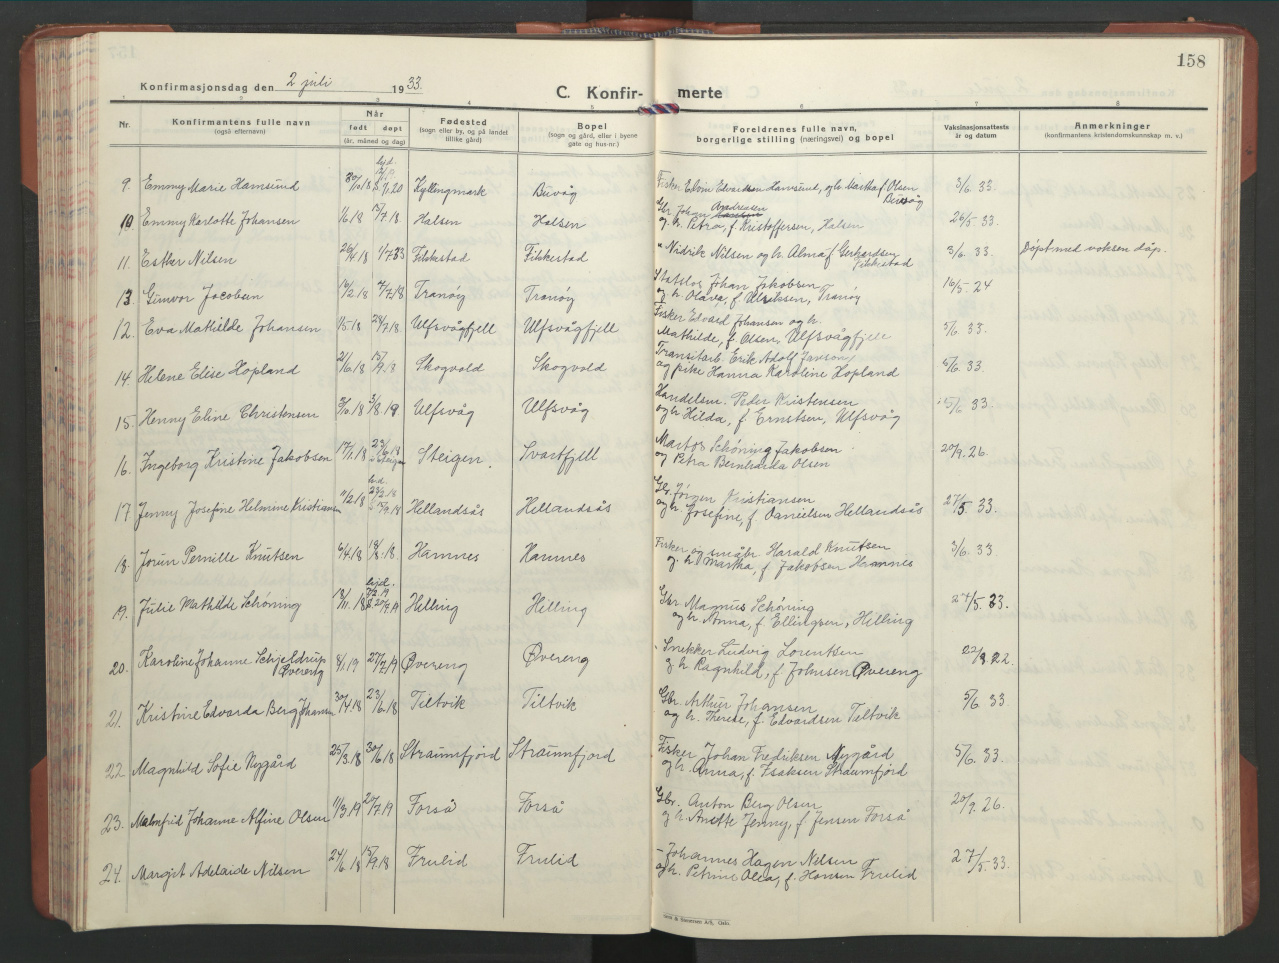 158
Konfirmasjonsdag den 2 juli 1933.
C. Konfirmerte
Nr.
Konfirmantens fulle navn
(også efternavn)
Når
født døpt
(år, måned og dag)
Fødested
(sogn eller by, og på landet
tillike gård)
Bopel
(sogn og gård, eller i byene
gate og hus-nr.)
Foreldrenes fulle navn,
borgerlige stilling (næringsvei) og bopel
Vaksinasjonsattests
år og datum
Anmerkninger
(konfirmantens kristendomskunnskap m. v.)
1 3 4 5 6 7 8
9. Emmy Marie Hamsund Kyllingmark Buvåg Fisker Edvin Edvardsen Hamsund, og h. Martha f. Olsen Buvåg 3/6. 33.
10 Emmy Karlotte Johansen 1/6 18 15/7 18 Halsen Halsen Gbr. Johan Andreassen og h. Petra, f. Kristoffersen, Halsen 26/5 33.
11. Ester Nilsen 26/4 18 2/7 33 Filskestad Filskestad " Nidrik Nilsen og h. Alma f. Gerhardsen Filskestad 3/6 33. Døpt med voksen dåp.
13. Gunvor Jacobsen 16/2 18 7/7 18 Tranøy Tranøy Statslos Johan Jakobsen og h. Olava, f. Ulriksen, Tranøy 16/5 - 24
12. Eva Mathilde Johansen 1/5 18 28/7 18 Ulfsvågfjell Ulfsvågfjell Fisker Edvard Johansen og h. Mathilde, f. Olsen, Ulfsvågfjell 5/6 33.
14. Helene Elise Hopland 2/6 18 15/9 18 Skogvold Skogvold Transitarb. Erik Adolf Janson, og pike Hanna Karoline Hopland 5/6. 33.
15. Henny Eline Christensen Ulfsvåg Ulfsvåg Handelsm. Peder Kristensen og h. Hilda, f. Ernstsen, Ulfsvåg 5/6 33.
16. Ingeborg Kristine Jakobsen 17/1 18 Steigen Steigen. Svartfjell Schøning Jakobsen og Petra Bernharda Olsen 20/9. 26.
17 Jenny Josefine Helmine Kristiansen 11/2 18 Hellandsås Hellandsås Gbr. Jørgen Kristiansen og h. Josefine, f. Danielsen Hellandsås 27/5 33.
18. Jorun Pernille Knutsen 6/4 18 18/8 18 Hamnes Hamnes Fisker og småbr. Harald Knutsen og h. Martha, f. Jakobsen Hamnes 3/6. 33
19. Julie Mathilde Schøning 18/11 18 Helling Helling Gbr. Magnus Schøning og h. Anna, f. Ellingsen, Helling 27/5. 33.
20. Karoline Johanne Schjeldrup Øvereng 8/1 19 27/7 19 Øvereng Øvereng Snekker Ludvig Lorentsen og h. Ragnhild, f. Johnsen Øvereng 22/8 22.
21. Kristine Edvarda Berg Johansen 30/4 18 23/6 18 Tiltvik Tiltvik Gbr. Arthur Johansen og h. Therese, f. Edvardsen Tiltvik 5/6 33
22 Magnhild Sofie Nygård 25/3 18 30/6 18 Straumfjord Straumfjord Fisker Johan Fredriksen Nygård og h. Anna, f. Isaksen Straumfjord 5/6. 33.
23. Malmfrid Johanne Alfine Olsen 1/3 19 20/7 19 Forså Forså Gbr. Anton Berg Olsen og h. Anette Jenny, f. Jensen Forså 20/9. 26.
24. Margit Adelaide Nilsen 24/6 18 15/9 18 Frulid Frulid - Johannes Hagen Nilsen og h. Petrine Alva, f. Hansen Frulid 27/5. 33.